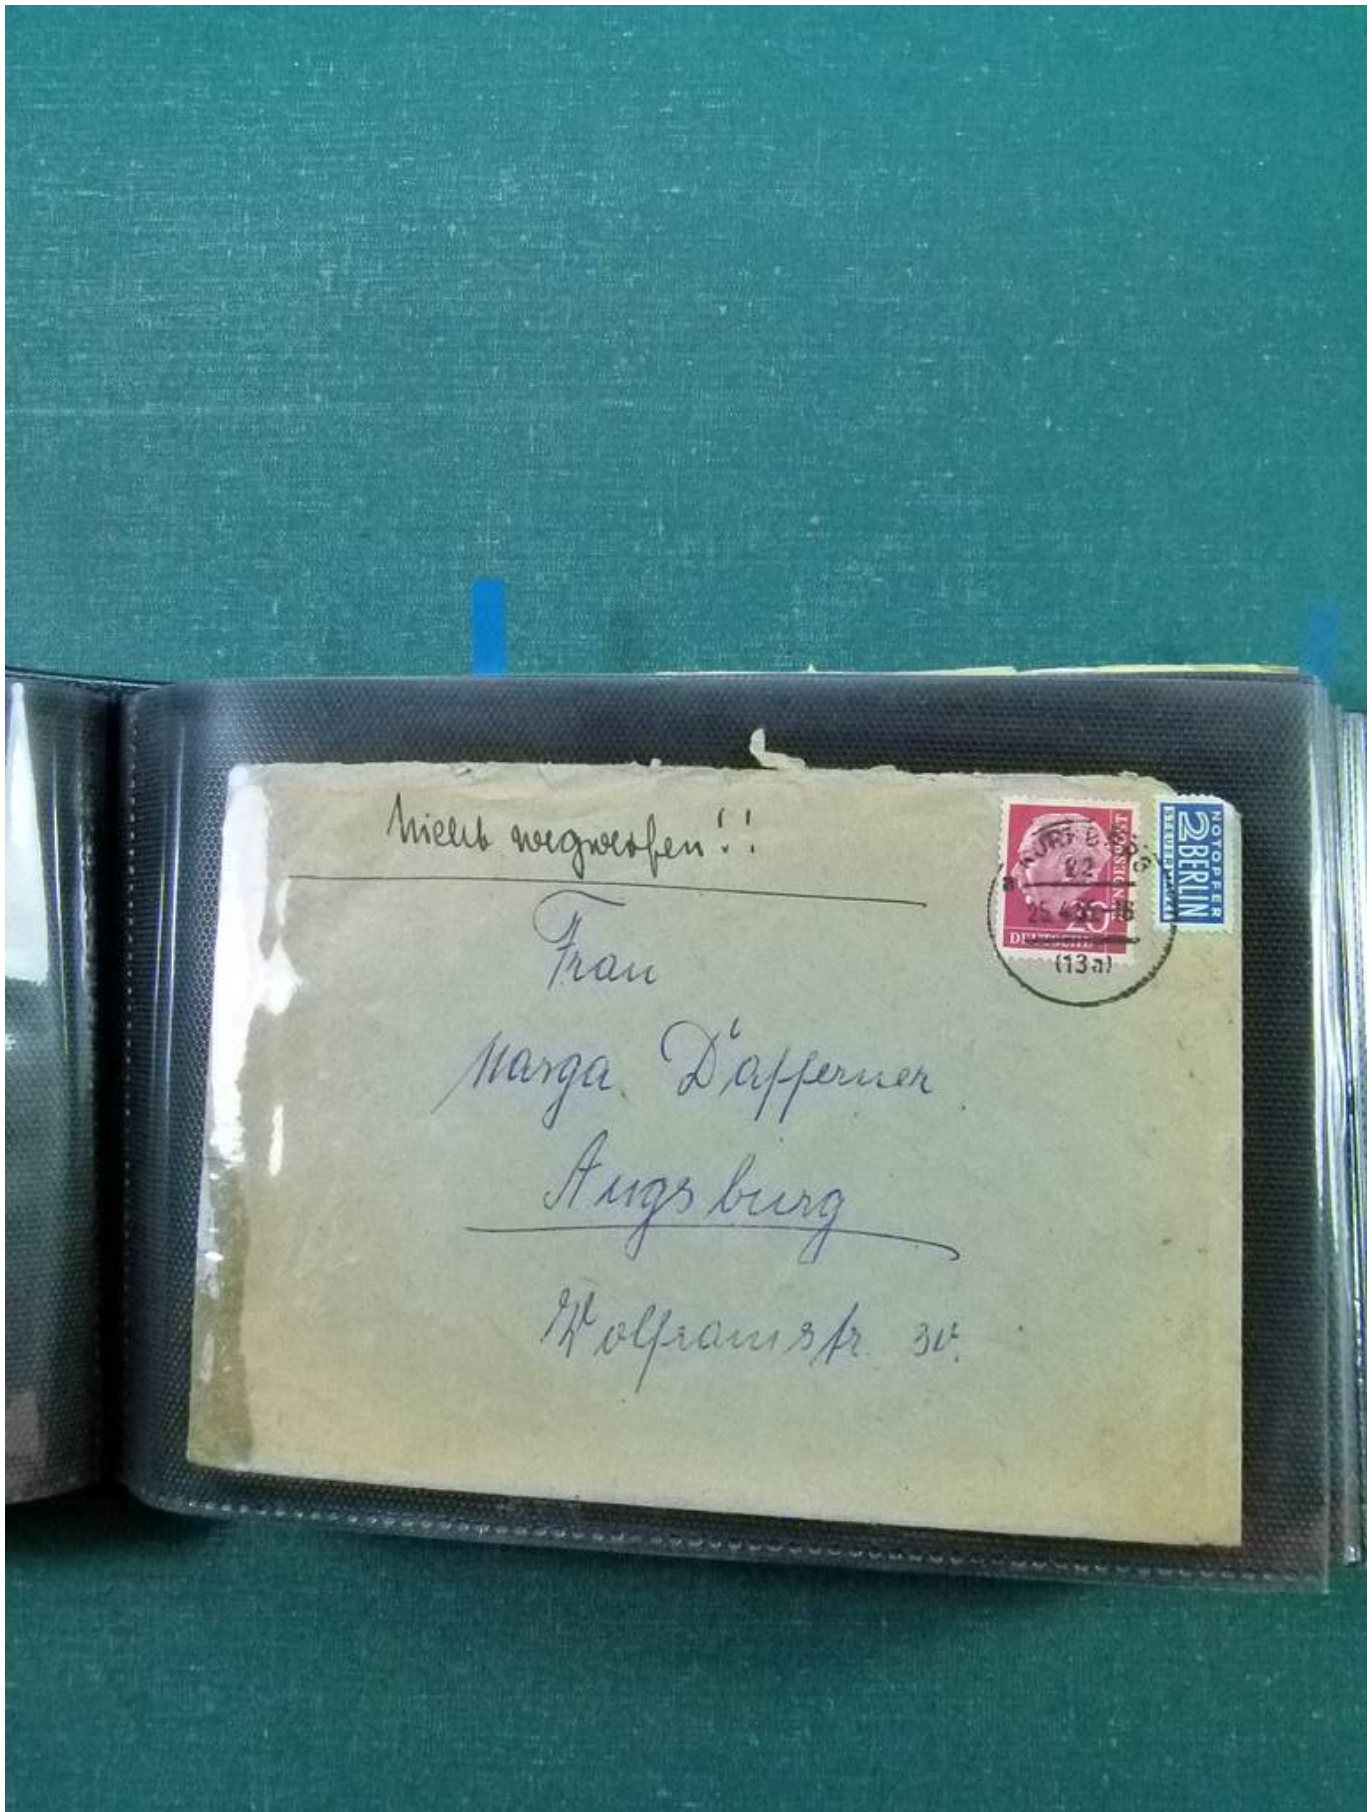 Nicht wegwerfen!!
Frau
Marga Däfferner
Augsburg
Wolframstr.
DEUTSCHE BUNDESPOST
20
22
25.4.
(13a)
NOTOPFER
2 BERLIN
STEUERMARKE